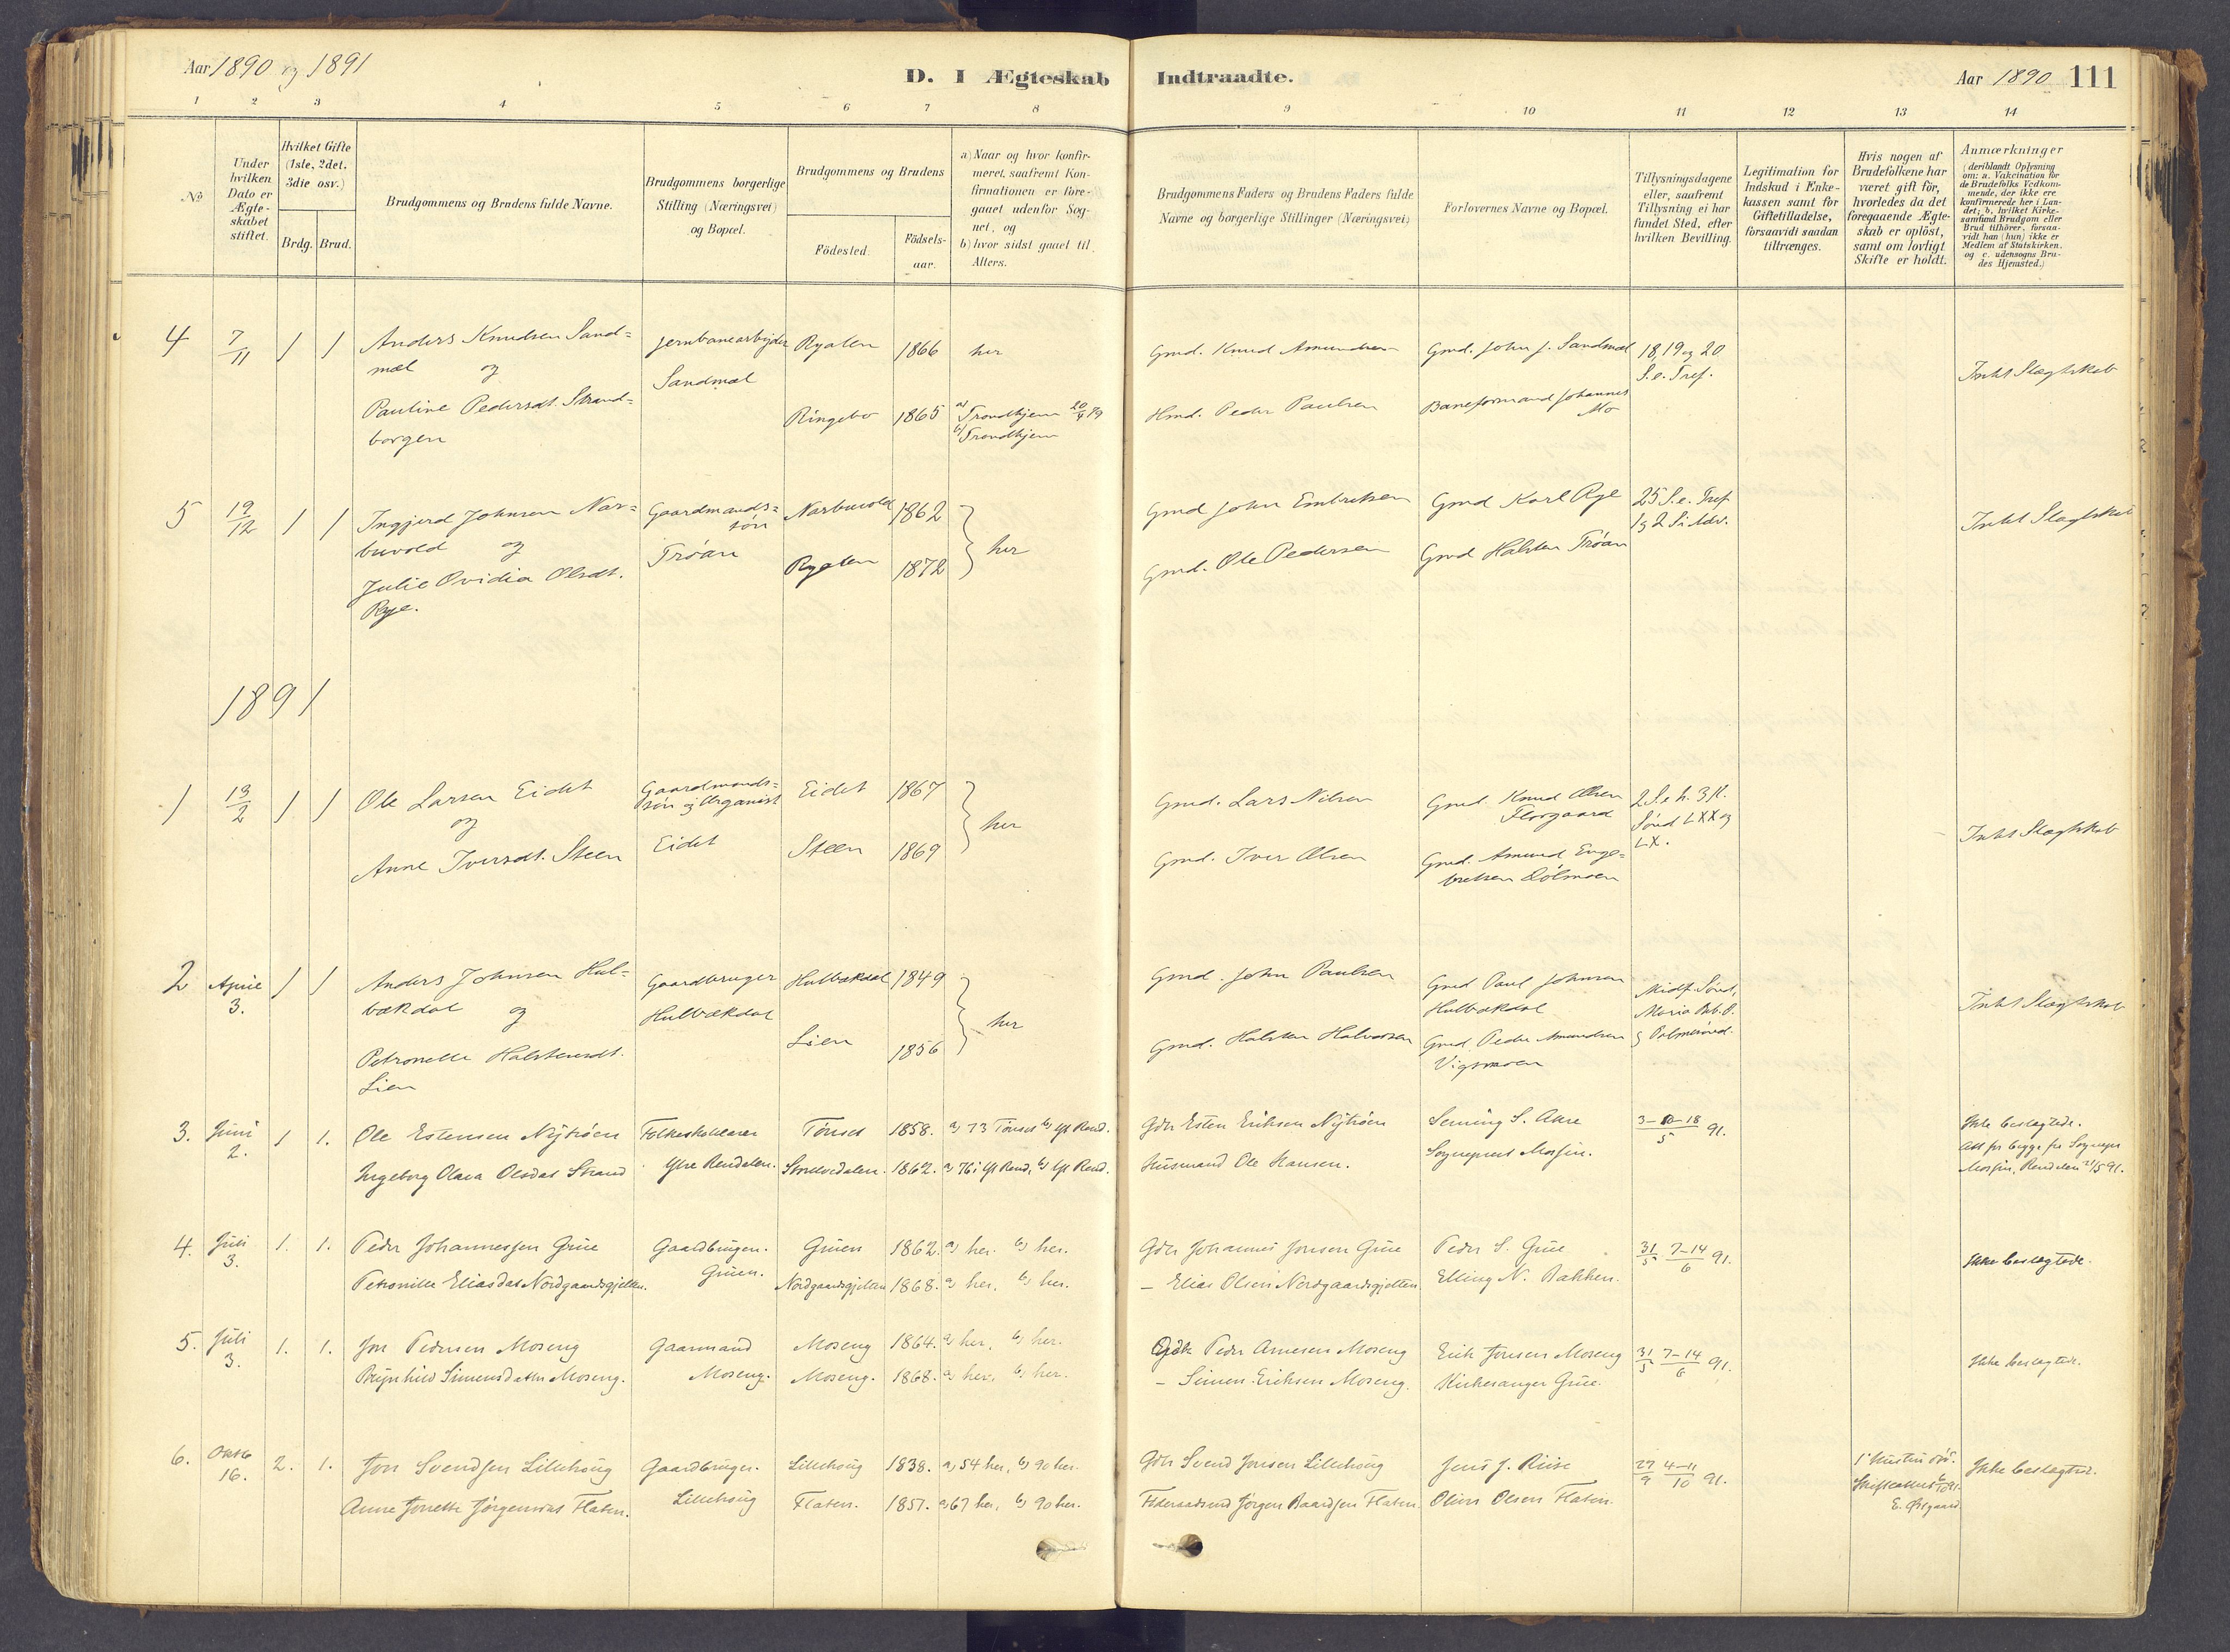 Aar 1890 og 1891
D. I Ægteskab Indtraadte.
Aar 1890 111
1 2 3 4 5 6 7 8 9 10 11 12 13 14
No
Under hvilken Dato er Ægte-skabet stiftet.
Hvilket Gifte (1ste, 2det. 3die osv.)
Brdg. Brud.
Brudgommens og Brudens fulde Navne.
Brudgommens borgerlige Stilling (Næringsvei) og Bopæl.
Brudgommens og Brudens
Födested.
Födsels-aar.
a) Naar og hvor konfir-meret, saafremt Kon-firmationen er fore-gaaet udenfor Sog-net, og
b) hvor sidst gaaet til Alters.
Brudgommens Faders og Brudens Faders fulde Navne og borgerlige Stillinger (Næringsvei)
Forlovernes Navne og Bopæl.
Tillysningsdagene eller, saafremt Tillysning ei har fundet Sted, efter hvilken Bevilling.
Legitimation for Indskud i Enke-kassen samt for Giftetilladelse, forsaavidt saadan tiltrænges.
Hvis nogen af Brudefolkene har været gift för, hvorledes da det foregaaende Ægte-skab er oplöst, samt om lovligt Skifte er holdt.
Anmærkninger (deriblandt Oplysning om: a. Vakcination for de Brudefolks Vedkom-mende, der ikke ere konfirmerede her i Lan-det; b. hvilket Kirke-samfund Brudgom eller Brud tilhörer, forsaa-vidt han (hun) ikke er Medlem af Statskirken, og c. udensogns Bru-des Hjemsted.)
4 7/11 1 1 Anders Knudsen Sand= Jernbanearbejder Ryalen 1866 her Gmd. Knud Amundsen Gmd. John J. Sandmæl 18, 19 og 20
mæl og Sandmæl S.e. Tref. Intet Slægtskab
Pauline Pedersdt. Strand= Ringebo 1865 a) Trondhjem b) Trondhjem Hmd. Peder Paulsen Baneformand Johannes Mo
borgen
5 19/12 1 1 Ingjerd Johnsen Nar= Gaardmands= Narbuvold 1862 Gmd John Embretsen Gmd Karl Rye 25 S.e. Tref
buvold og søn her 1 g 2 S. i Adv. Intet Slægtskab
Julie Ovidia Olsdt. Trøan Ryalen 1872 Gmd. Ole Pedersen Gmd Halsten Trøan
Rye.
1891
1 13/2 1 1 Ole Larsen Eidet Gaardmands= Eidet 1867 Gmd. Lars Nilsen Gmd. Knud Olsen 2 S.e h. 3 K.
og søn og Organist her Florgaard Sønd LXX og Intet Slægtskab
Anne Iversdt. Steen Eidet Steen 1869 Gmd. Iver Olsen Gmd. Amund Enge= LX.
bretsen Dølmoen
2 April 1 1 Anders Johnsen Hul= Gaardbruger Hulbækdal 1849 Gmd. John Paulsen Gmd Paul Johnsen Midf. Sønd,
3. bækdal og Hulbækdal her Hulbækdal Maria Beb. D. Intet Slægtskab
Petronelle Halstensdt. Lien 1856 Gmd. Halsten Halvorsen Gmd. Peder Amundsen g Palmesønd.
Lien Vigsmoen
3. Juni 1 1. Ole Estensen Nytrøen Folkeskolelærer Tönset 1858. a) 73 Tönset b) Yt Rend. Gdbr Esten Eriksen Nytrøen Seming S. Akre 3-10-18/5 91. Ikke beslægtede.
2. Ingeborg Olava Olsdat Strand Ytre Rendalen. Storelvedalen. 1862. a) 76 i Yt Rend, b) Yt Rend. Husmand Ole Hansen. Sognepræst Morsin. Att fr begge fr Sognepr Morsin, Rendalen 21/5 91.
4. Juli 1. 1. Peder Johannessen Grue Gaardbruger. Gruen 1862. a) her. b) her. Gdbr Johannes Jonsen Grue Peder S. Grue 31/5 7-14/6 91.
3. Petronille Eliasdat Nordgaardsgjelten. Gruen. Nordgaardsgjelten 1868. a) her, b) her. — Elias Olsen Nordgaardsgjelten Elling N. Bakken. Ikke beslægtede.
5. Juli 1. 1. Jon Pedersen Moseng Gaarmand Moseng 1864. a) her, b) her. Gdbr Peder Arnesen Moseng Erik Jonsen Moseng 31/5 7-14/6 91. Ikke beslægtede.
3. Brynhild Simensdatter Moseng. Moseng. Moseng. 1868. a) her, b) her. — Simen Eriksen Moseng. Kirkesanger Grue.
6. Oktb 2. 1. Jon Svendsen Lillehoug Gaardbruger. Lillehoug 1838. a) 54 her, b) 90 her. Gdbr Svend Jonsen Lillehoug Jens J. Riise 27/9 4-11/10 91. Ikke beslægtede.
16. Anne Jonette Jörgensdat Flaten. Lillehoug Flaten. 1851. a) 67 her, b) 90 her. Föderaadsmd Jörgen Baardsen Flaten. Oliver Olsen Flaten. E. Østgaard